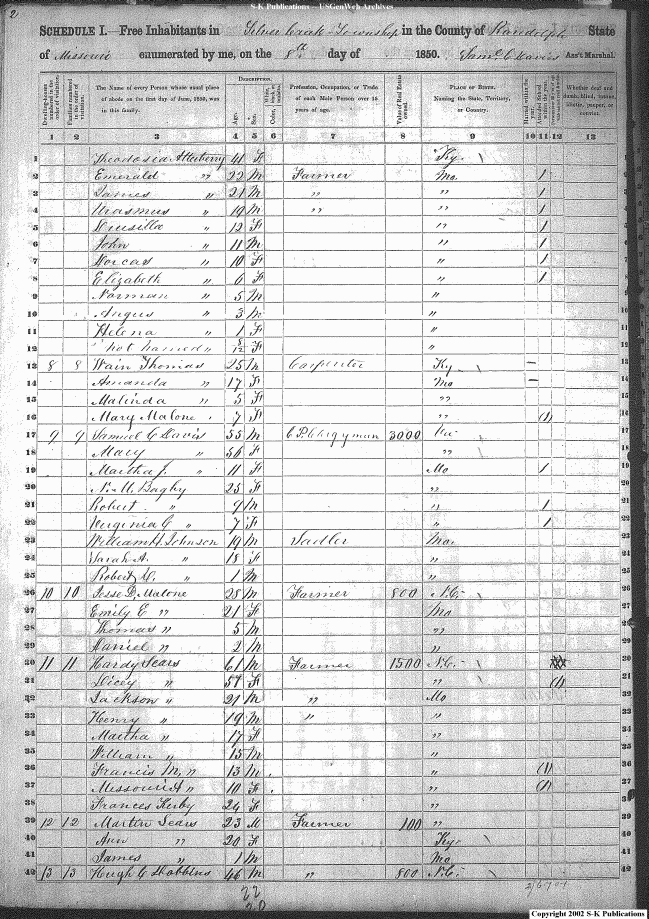 S-K Publications -- USGenWeb Archives
2
SCHEDULE I.—Free Inhabitants in Silver Creek Township in the County of Randolph State
of Missouri enumerated by me, on the 8th day of 1850. Saml C Davis Ass't Marshal.
Dwelling-houses numbered in the order of visitation. Families numbered in the order of visitation. The Name of every Person whose usual place of abode on the first day of June, 1850, was in this family. DESCRIPTION. Age. Sex. Color. Profession, Occupation, or Trade of each Male Person over 15 years of age. Value of Real Estate owned. PLACE OF BIRTH. Naming the State, Territory, or Country. Married within the year. Whether deaf and dumb, blind, insane, idiotic, pauper, or convict.
1 2 3 4 5 6 7 8 9 10 11 12 13
1 Theodosia Atterberry 41 F Ky. 1
2 Emerald " 22 M Farmer Mo. 1 2
3 James " 21 M " " 1 3
4 Urasmus " 19 M " " 1 4
5 Drusilla " 12 F " 1 5
6 John " 11 M " 1 6
7 Dorcas " 10 F " 1 7
8 Elizabeth " 6 F " 1 8
9 Norman " 5 M " 9
10 Angus " 3 M " 10
11 Helena " 1 F " 11
12 not named " 8/12 F " 12
13 8 8 Wain Thomas 25 M Carpenter Ky – 13
14 Amanda " 17 F Mo – 14
15 Malinda " 5 F " 15
16 Mary Malone 7 F " (1) 16
17 9 9 Samuel C Davis 55 M C.P. Clergyman 3000 17
18 Mary " 56 F " 18
19 Martha J. " 11 F Mo 1 19
20 N. M. Bagby 25 F " 20
21 Robert " 9 M " 1 21
22 Virginia C " 7 F " 1 22
23 William H. Johnson 19 M Sadler Mo. 23
24 Sarah A. " 18 F " 24
25 Robert " 1 M " 25
26 10 10 Jesse D. Malone 28 M Farmer 800 N.C. 26
27 Emily E " 21 F Mo 27
28 Thomas " 5 M " 28
29 Daniel " 2 M " 29
30 11 11 Hardy Sears 61 M Farmer 1500 N.C. 30
31 Dicey " 57 F " (1) 31
32 Jackson " 21 M " Mo
33 Henry " 19 M " "
34 Martha " 17 F "
35 William " 15 M "
36 Francis M. " 13 M " (1)
37 Missouri A " 10 F " (1)
38 Frances Kerby 24 F "
39 12 12 Martin Sears 23 M Farmer 100 "
40 Ann " 20 F Ky.
41 James " 1 M Mo
42 13 13 Hugh G 46 M " 800 N.C. 42
22
20
Copyright 2002 S-K Publications